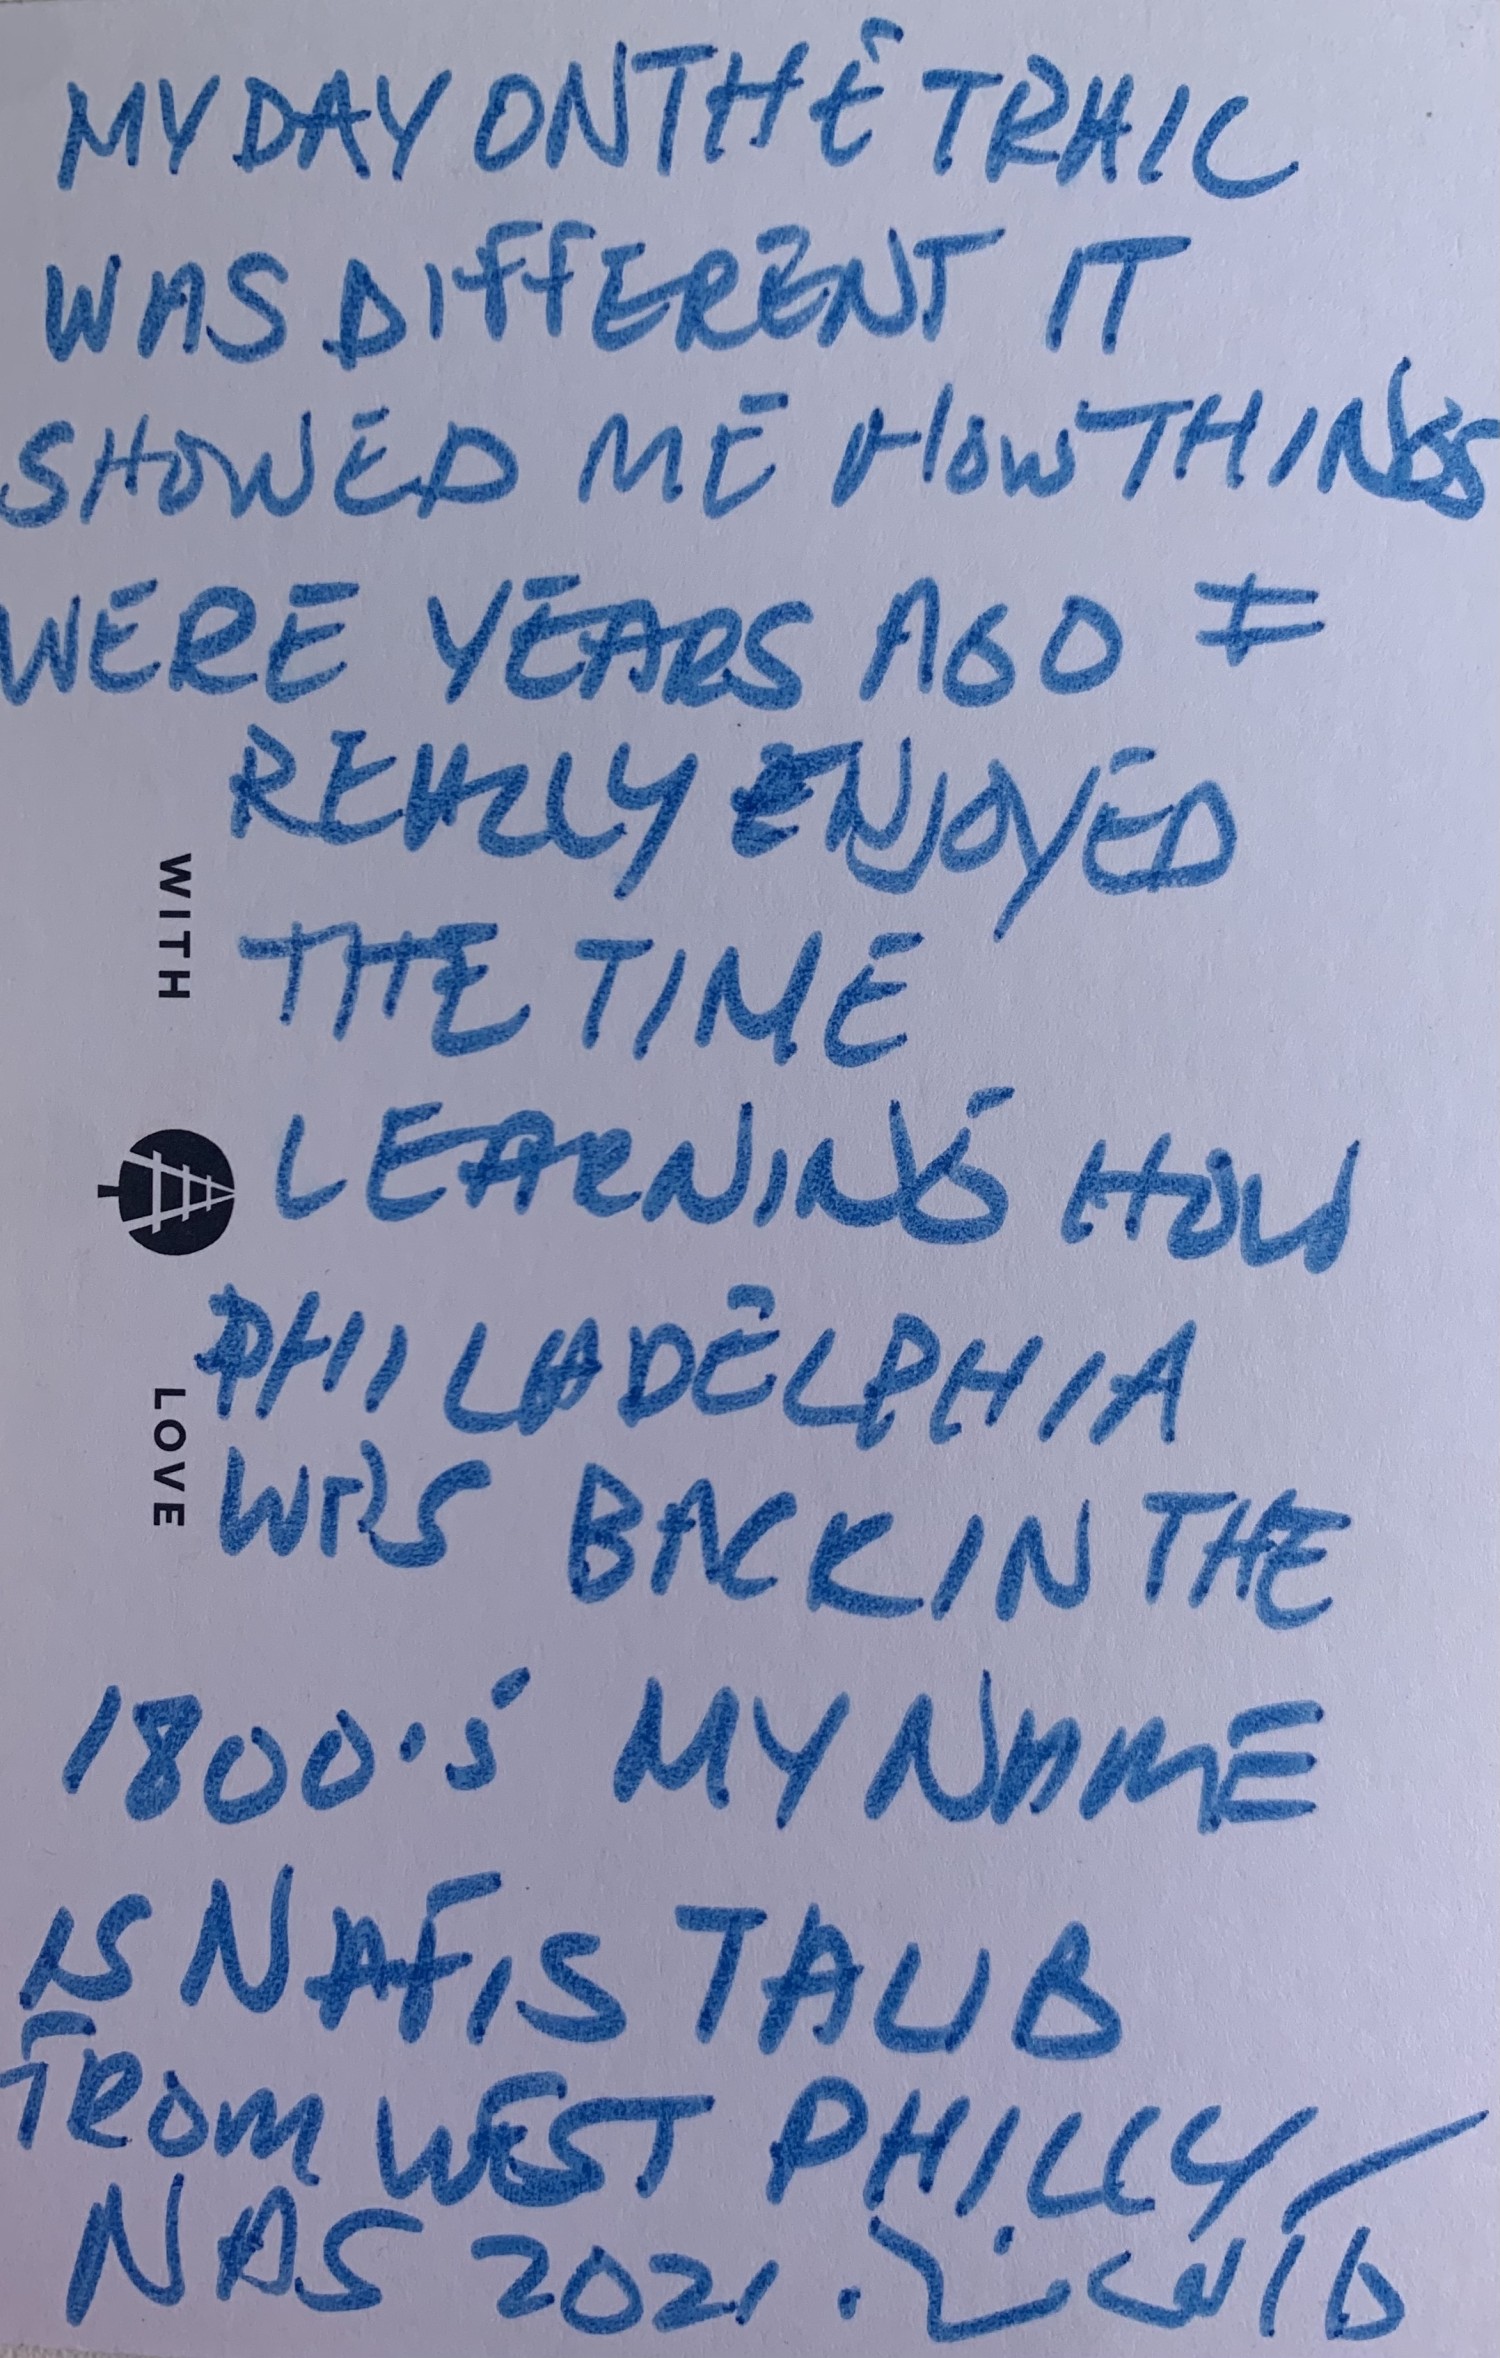 MY DAY ON THE TRAIL
WAS DIFFERENT IT
SHOWED ME HOW THINGS
WERE YEARS AGO I
REALLY ENJOYED
THE TIME
LEARNING HOW
PHILADELPHIA
WAS BACK IN THE
1800's MY NAME
IS NAFIS TAUB
FROM WEST PHILLY
NAS 2021.
WITH
LOVE